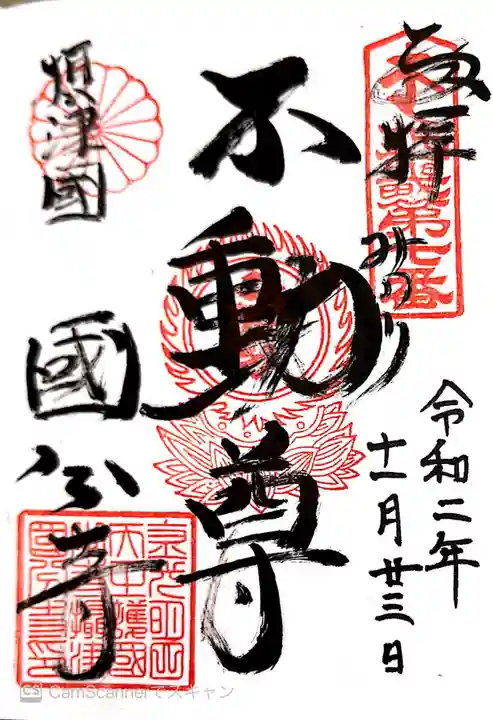 奉拝
みのり
令和二年
十一月廿三日
不動尊
摂津國
國分寺
第七番
CS CamScannerでスキャン